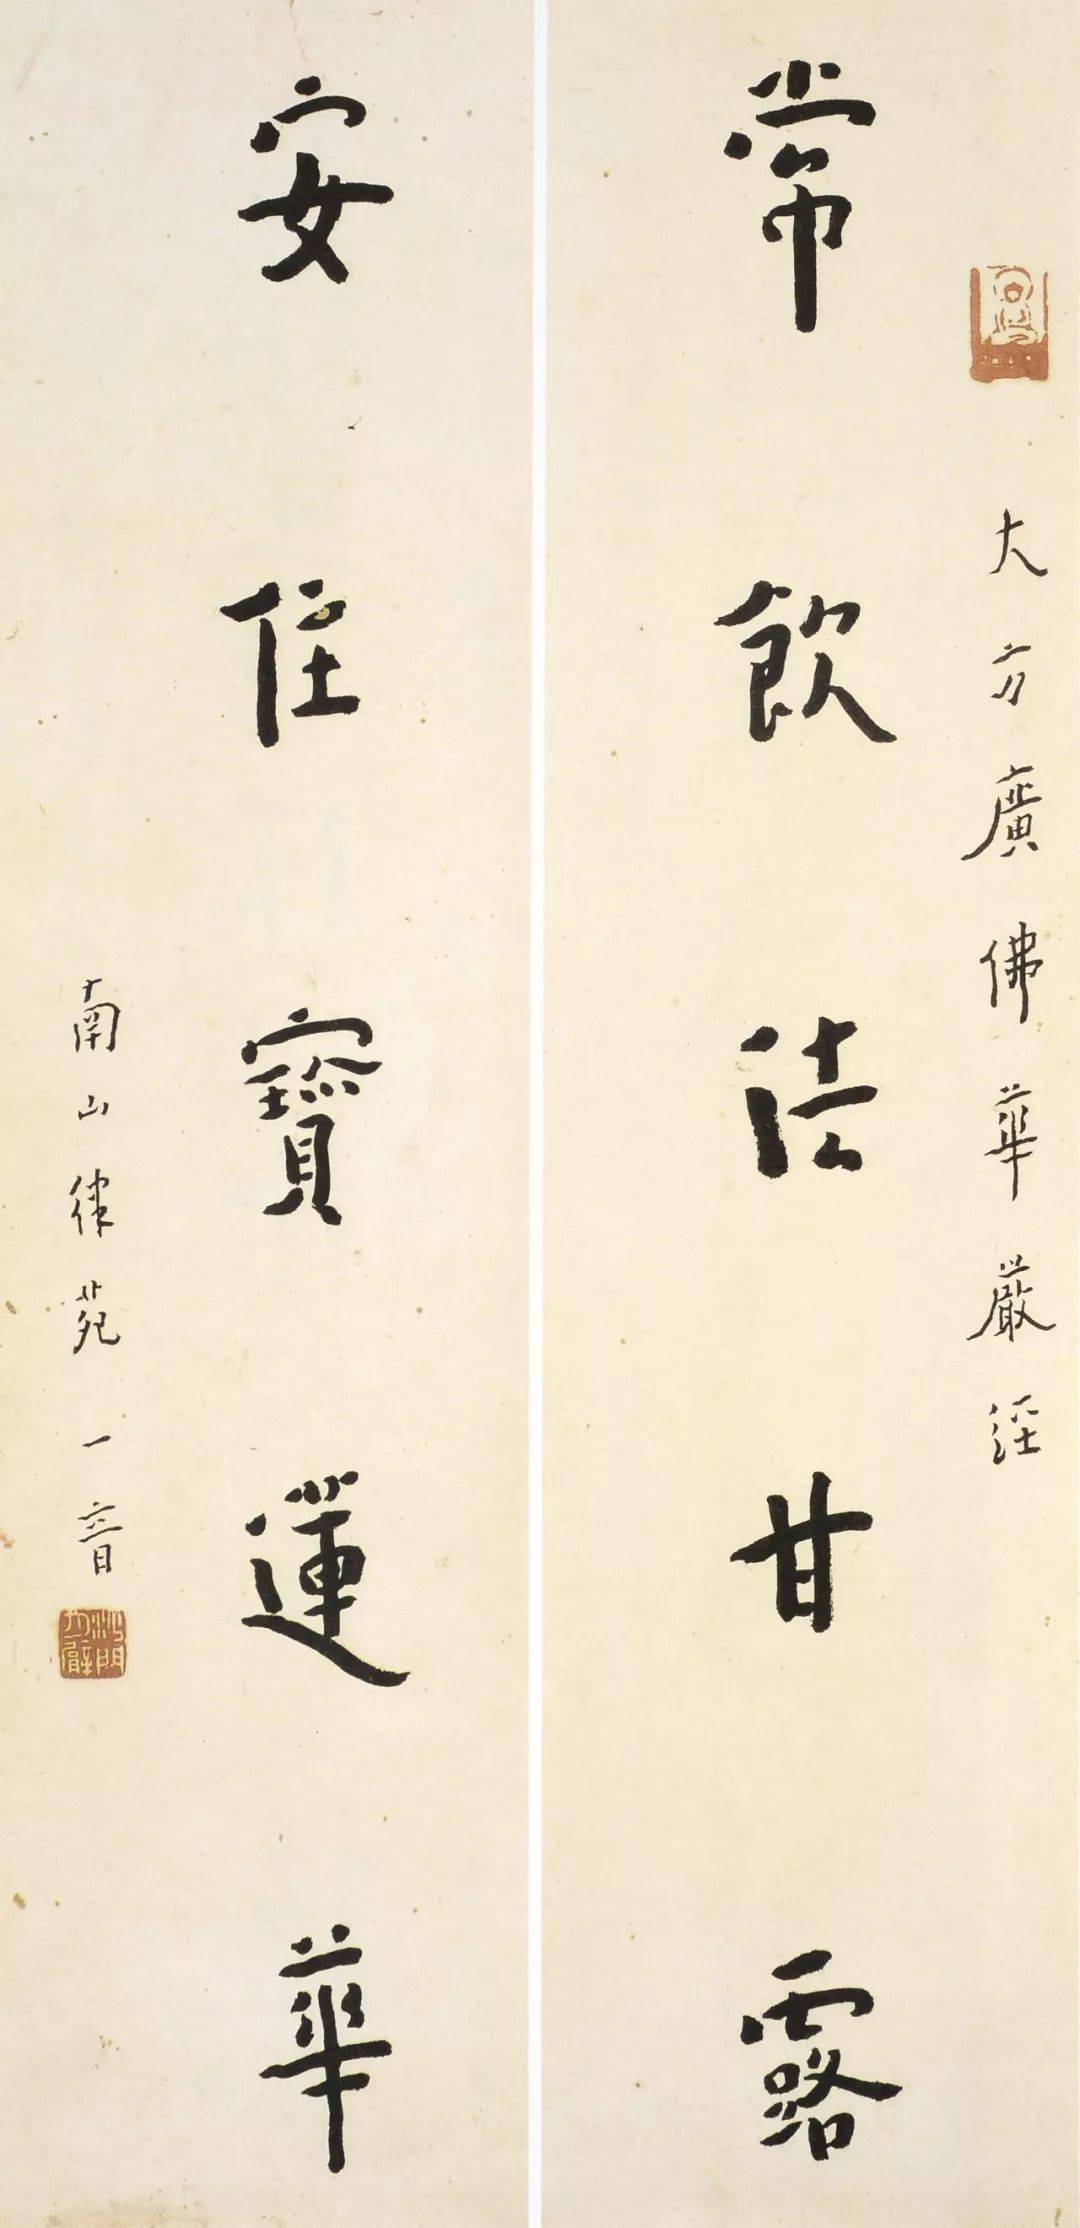 大方廣佛華嚴經
常飲法甘露
安住寳蓮華
南山律苑 一音
沙門月臂